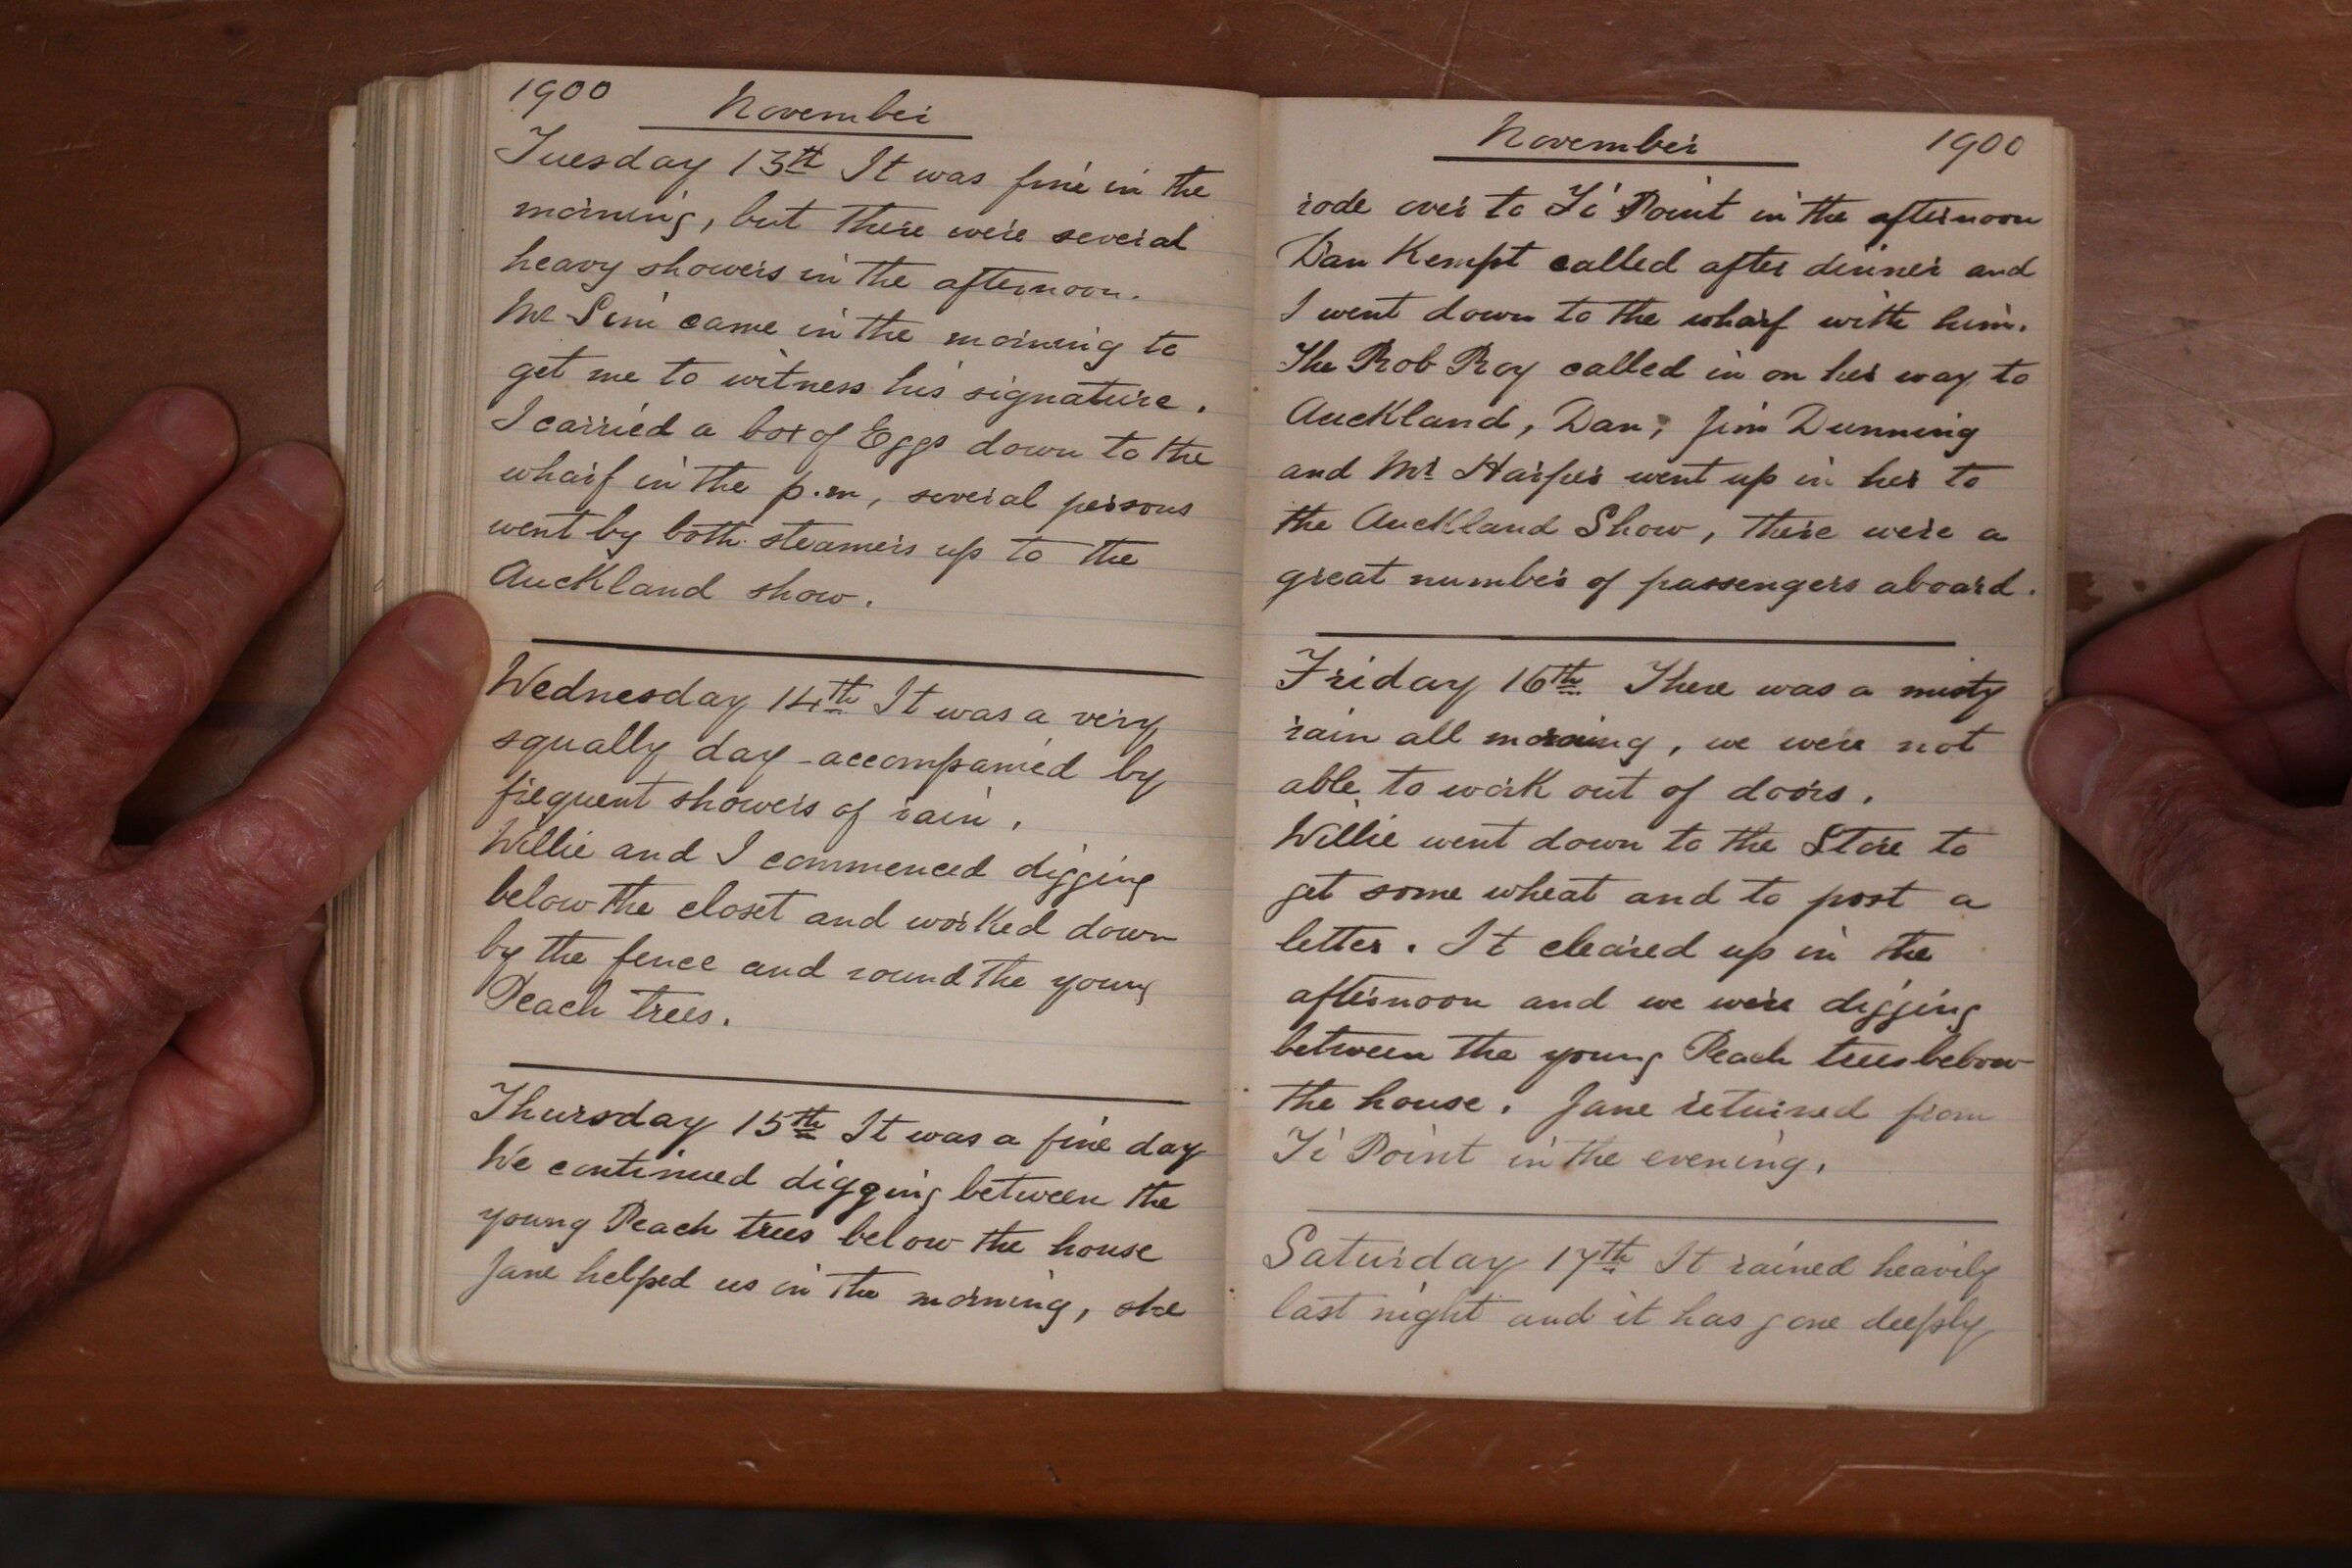 1900
November
Tuesday 13th It was fine in the
morning, but there were several
heavy showers in the afternoon.
Mr Sim came in the morning to
get me to witness his signature.
I carried a box of Eggs down to the
wharf in the p.m, several persons
went by both steamers up to the
Auckland show.
Wednesday 14th It was a very
squally day accompanied by
frequent showers of rain.
Willie and I commenced digging
below the closet and worked down
by the fence and round the young
Peach trees.
Thursday 15th It was a fine day
We continued digging between the
young Peach trees below the house
Jane helped us in the morning, she
November 1900
rode over to Ti Point in the afternoon
Dan Kempt called after dinner and
I went down to the wharf with him.
The Rob Roy called in on her way to
Auckland, Dan, Jim Dunning
and Mr Harper went up in her to
the Auckland Show, there were a
great number of passengers aboard.
Friday 16th There was a misty
rain all morning, we were not
able to work out of doors.
Willie went down to the Store to
get some wheat and to post a
letter. It cleared up in the
afternoon and we were digging
between the young Peach trees below
the house. Jane returned from
Ti Point in the evening.
Saturday 17th It rained heavily
last night and it has gone deeply